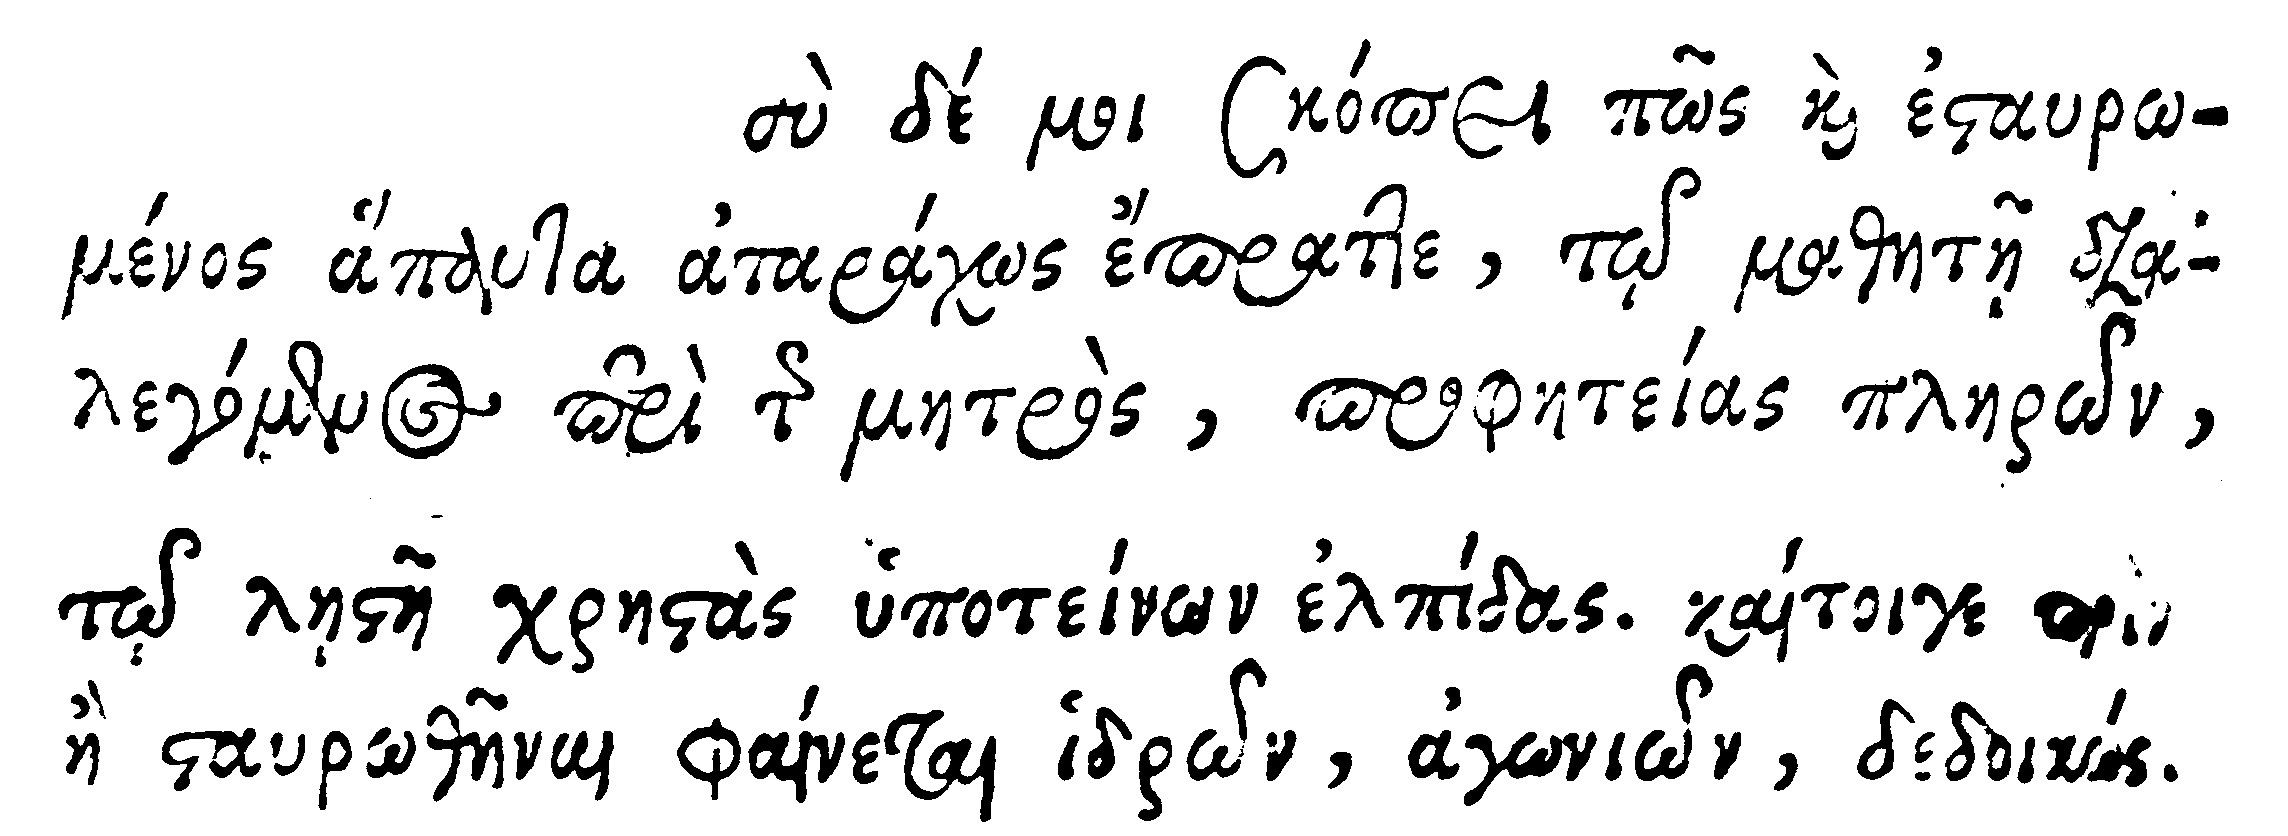 σὺ δέ μοι σκόπει πῶς κ̀ ἐσταυρω-
μένος ἅπαντα ἀταράχως ἔπραττε, τῷ μαθητῇ δια-
λεγόμενος περὶ τ͂ μητρὸς, προφητείας πληρῶν,
τῷ λῃστῇ χρηστὰς ὑποτείνων ἐλπίδας. καίτοιγε πρὶν
ἢ σταυρωθῆναι φαίνεται ἱδρῶν, ἀγωνιῶν, δεδοικώς.